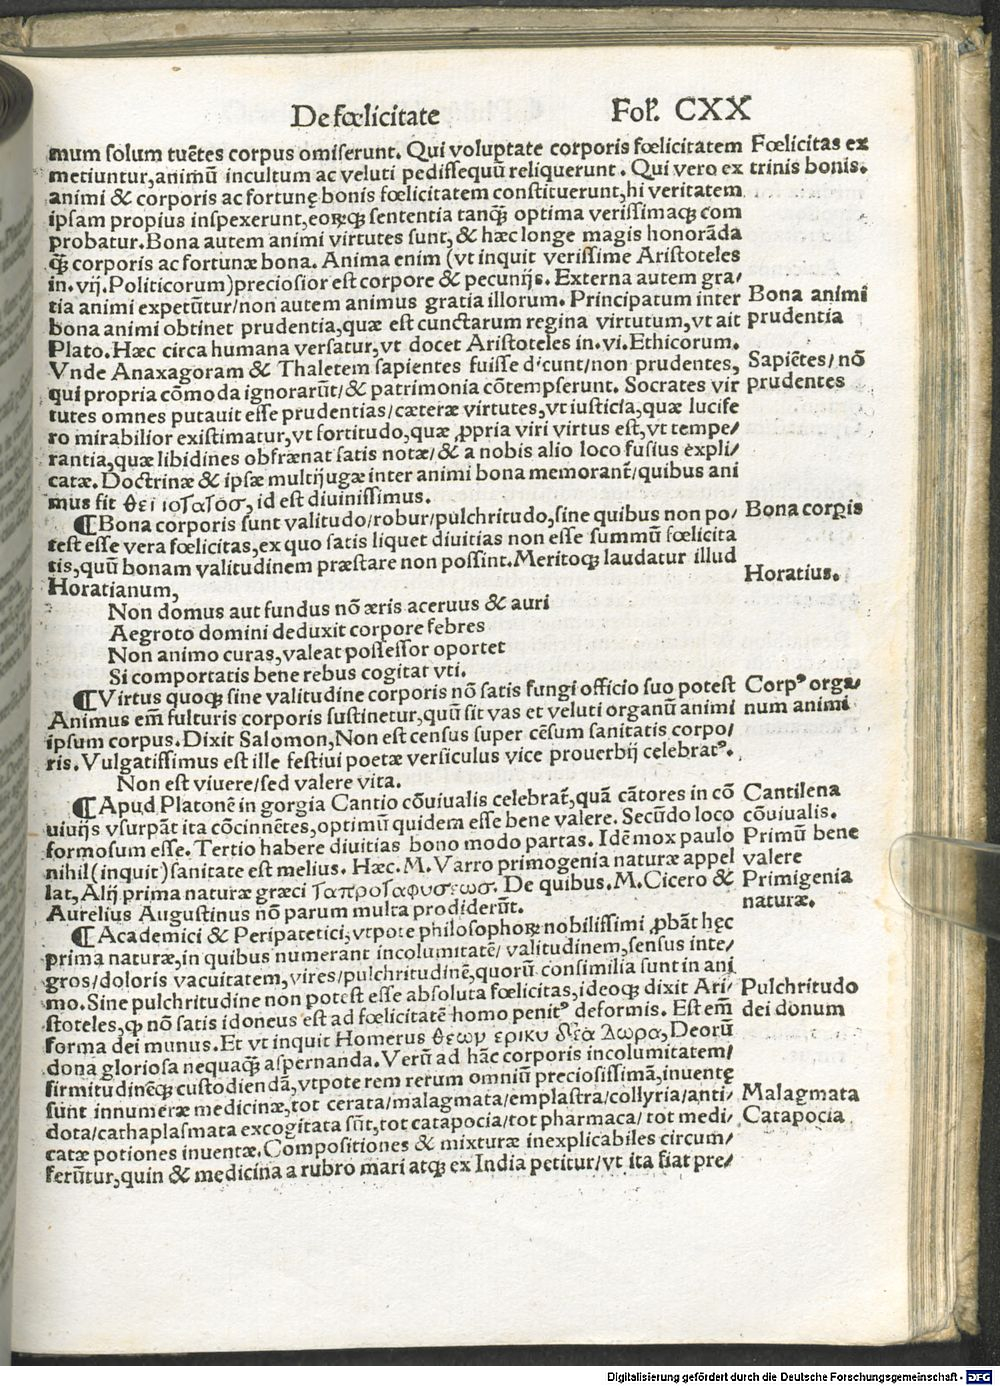 De fœlicitate Folꝰ. CXX
mum solum tuẽtes corpus omiserunt. Qui voluptate corporis fœlicitatem
metiuntur,animũ incultum ac veluti pedissequũ reliquerunt. Qui vero ex
animi & corporis ac fortunę bonis fœlicitatem constituerunt,hi veritatem
ipsam propius inspexerunt,eorꝝqꝫ sententia tanqꝫ̃ optima verissimaqꝫ com
probatur.Bona autem animi virtutes sunt,& hæc longe magis honorãda
qꝫ̃ corporis ac fortunæ bona. Anima enim (vt inquit verissime Aristoteles
in.vij.Politicorum)preciosior est corpore & pecunijs. Externa autem gra/
tia animi expetũtur/non autem animus gratia illorum. Principatum inter
bona animi obtinet prudentia,quæ est cunctarum regina virtutum,vt ait
Plato.Hæc circa humana versatur,vt docet Aristoteles in.vi.Ethicorum.
Vnde Anaxagoram & Thaletem sapientes fuisse dicunt/non prudentes,
qui propria cõmoda ignorarũt/& patrimonia cõtempserunt. Socrates vir
tutes omnes putauit esse prudentias/cæteræ virtutes,vt iusticia,quæ lucife
ro mirabilior existimatur,vt fortitudo,quæ ꝓpria viri virtus est,vt tempe/
rantia,quæ libidines obfrænat satis notæ/& a nobis alio loco fusius expli/
catæ.Doctrinæ & ipsæ multijugæ inter animi bona memorant̃/quibus ani
mus fit θει ιοτατοσ,id est diuinissimus.
¶Bona corporis sunt valitudo/robur/pulchritudo,sine quibus non po/
test esse vera fœlicitas,ex quo satis liquet diuitias non esse summũ fœlicita
tis,quũ bonam valitudinem præstare non possint.Meritoqꝫ laudatur illud
Horatianum,
Non domus aut fundus nõ æris aceruus & auri
Aegroto domini deduxit corpore febres
Non animo curas,valeat possessor oportet
Si comportatis bene rebus cogitat vti.
¶Virtus quoqꝫ sine valitudine corporis nõ satis fungi officio suo potest
Animus em̃ fulturis corporis sustinetur,quũ sit vas et veluti organũ animi
ipsum corpus.Dixit Salomon,Non est census super cẽsum sanitatis corpo/
ris.Vulgatissimus est ille festiui poetæ versiculus vice prouerbij celebratꝰ.
Non est viuere/sed valere vita.
¶Apud Platonẽ in gorgia Cantio cõuiualis celebrat̃,quã cãtores in cõ
uiuijs vsurpãt ita cõcinnẽtes,optimũ quidem esse bene valere. Secũdo loco
formosum esse. Tertio habere diuitias bono modo partas. Idẽ mox paulo
nihil(inquit)sanitate est melius. Hæc.M.Varro primogenia naturæ appel
lat,Alij prima naturæ græci ταπροταφυσεωσ. De quibus.M.Cicero &
Aurelius Augustinus nõ parum multa prodiderũt.
¶Academici & Peripatetici,vtpote philosophorꝝ nobilissimi ꝓbãt hęc
prima naturæ,in quibus numerant incolumitatẽ/valitudinem,sensus inte/
gros/doloris vacuitatem,vires/pulchritudinẽ,quorũ consimilia sunt in ani
mo.Sine pulchritudine non potest esse absoluta fœlicitas,ideoqꝫ dixit Ari/
stoteles,ꝙ nõ satis idoneus est ad fœlicitatẽ homo penitꝰ deformis. Est em̃
forma dei munus. Et vt inquit Homerus θεων ερικυ δεα Δωρα,Deorũ
dona gloriosa nequaqꝫ̃ aspernanda.Verũ ad hãc corporis incolumitatem/
firmitudinẽqꝫ custodiendã,vtpote rem rerum omniũ preciosissimã,inuentę
sunt innumeræ medicinæ,tot cerata/malagmata/emplastra/collyria/anti/
dota/cathaplasmata excogitata sũt,tot catapocia/tot pharmaca/tot medi/
catæ potiones inuentæ.Compositiones & mixturæ inexplicabiles circum/
ferũtur,quin & medicina a rubro mari atqꝫ ex India petitur/vt ita fiat pre/
Fœlicitas ex
trinis bonis.
Bona animi
prudentia
Sapiẽtes/nõ
prudentes
Bona corꝑis
Horatius.
Corpꝰ orga/
num animi
Cantilena
cõuiualis.
Primũ bene
valere
Primigenia
naturæ.
Pulchritudo
dei donum
Malagmata
Catapocia
Digitalisierung gefördert durch die Deutsche Forschungsgemeinschaft - DFG